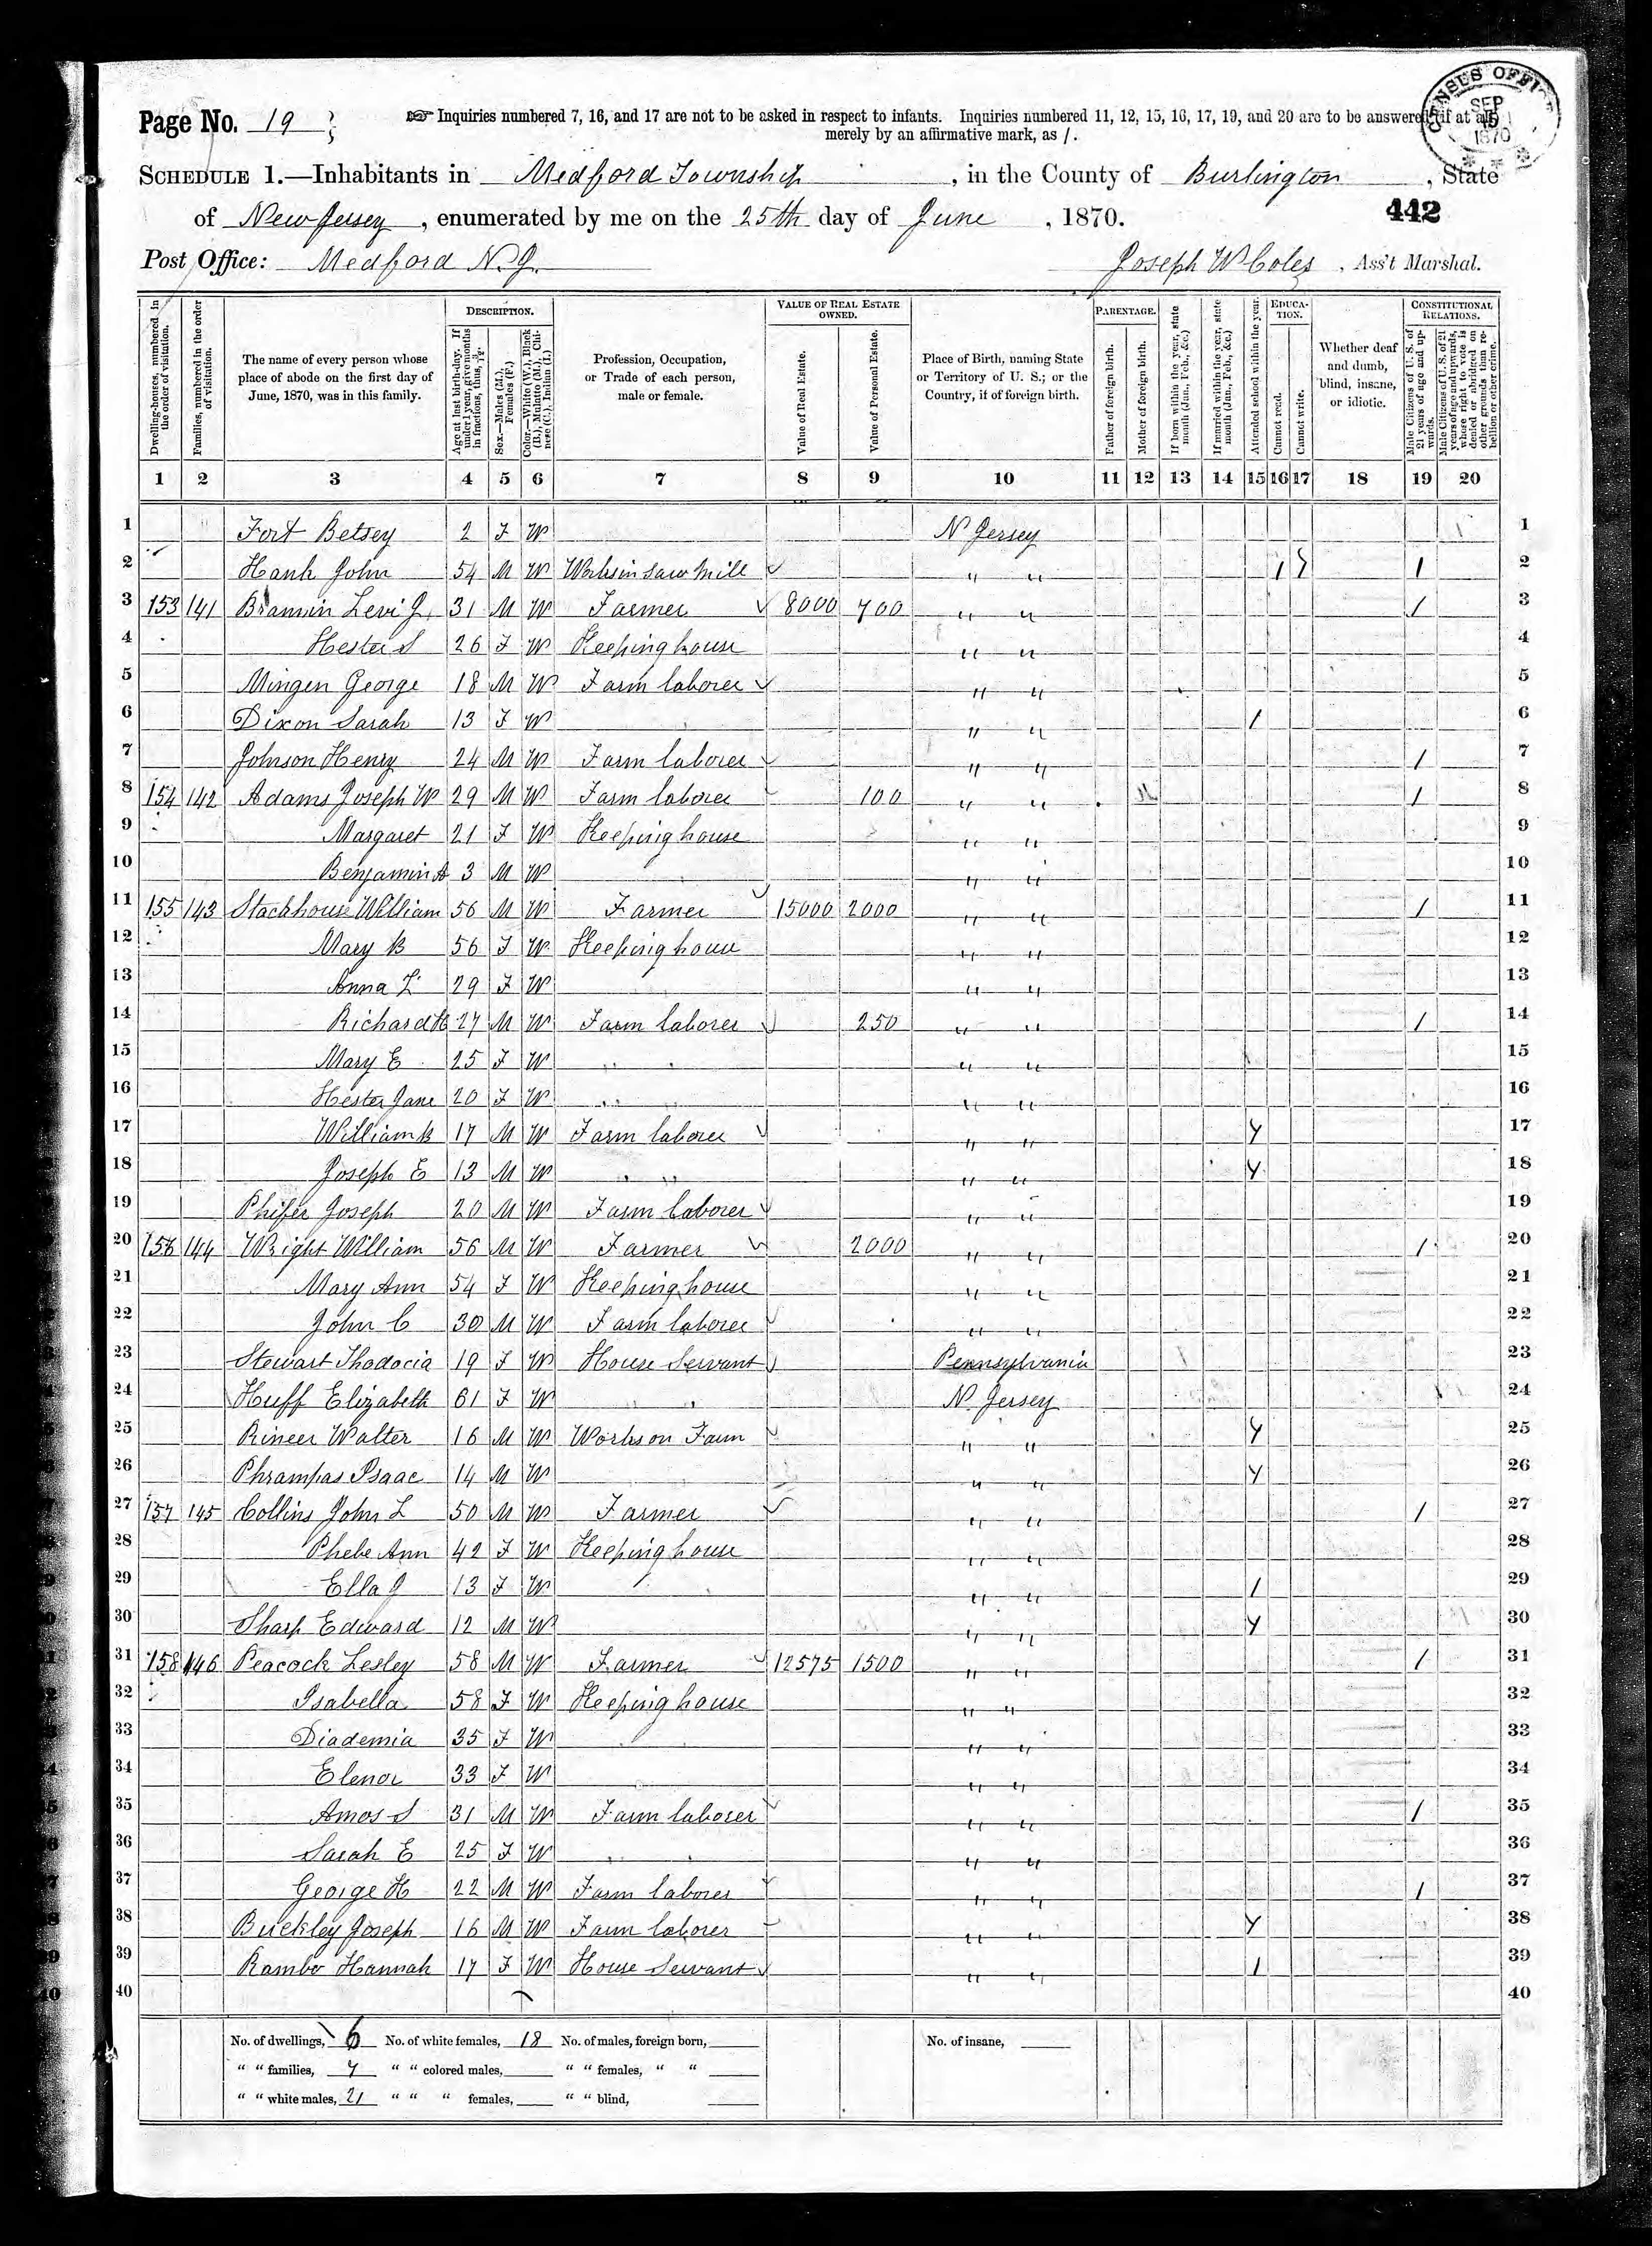 Page No. 19
☞ Inquiries numbered 7, 16, and 17 are not to be asked in respect to infants. Inquiries numbered 11, 12, 15, 16, 17, 19, and 20 are to be answered, if at all,
merely by an affirmative mark, as /.
CENSUS OFFICE SEP 15 1870
SCHEDULE 1.—Inhabitants in Medford Township, in the County of Burlington, State
of New Jersey, enumerated by me on the 25th day of June, 1870. 442
Post Office: Medford N.J. Joseph W Coles, Ass't Marshal.
Dwelling-houses, numbered in the order of visitation.
Families, numbered in the order of visitation.
The name of every person whose place of abode on the first day of June, 1870, was in this family.
DESCRIPTION.
Age at last birth-day. If under 1 year, give months in fractions, thus, 3/12.
Sex.—Males (M.), Females (F.)
Color.—White (W.), Black (B.), Mulatto (M.), Chinese (C.), Indian (I.)
Profession, Occupation, or Trade of each person, male or female.
VALUE OF REAL ESTATE OWNED.
Value of Real Estate.
Value of Personal Estate.
Place of Birth, naming State or Territory of U. S.; or the Country, if of foreign birth.
PARENTAGE.
Father of foreign birth.
Mother of foreign birth.
If born within the year, state month (Jan., Feb., &c.)
If married within the year, state month (Jan., Feb., &c.)
Attended school within the year.
EDUCATION.
Cannot read.
Cannot write.
Whether deaf and dumb, blind, insane, or idiotic.
CONSTITUTIONAL RELATIONS.
Male Citizens of U. S. of 21 years of age and upwards.
Male Citizens of U. S. of 21 years of age and upwards, whose right to vote is denied or abridged on other grounds than rebellion or other crime.
1 2 3 4 5 6 7 8 9 10 11 12 13 14 15 16 17 18 19 20
1 Fort Betsey 2 F W N Jersey 1
2 Hank John 54 M W Works in Saw Mill " " / / / 2
3 153 141 Brannin Levi J. 31 M W Farmer 8000 700 " " / 3
4 Hester S 26 F W Keeping house " " 4
5 Mingen George 18 M W Farm laborer " " 5
6 Dixon Sarah 13 F W " " / 6
7 Johnson Henry 24 M W Farm laborer " " / 7
8 154 142 Adams Joseph W 29 M W Farm laborer 100 " " / 8
9 Margaret 21 F W Keeping house " " 9
10 Benjamin A 3 M W " " 10
11 155 143 Stackhouse William 56 M W Farmer 15000 2000 " " / 11
12 Mary B 56 F W Keeping house " " 12
13 Anna L 29 F W " " 13
14 Richard H 27 M W Farm laborer 250 " " / 14
15 Mary E 25 F W " " 15
16 Hester Jane 20 F W " " 16
17 William B 17 M W Farm laborer " " Y 17
18 Joseph E 13 M W " " Y 18
19 Phifer Joseph 20 M W Farm laborer " " 19
20 156 144 Wright William 56 M W Farmer 2000 " " / 20
21 Mary Ann 54 F W Keeping house " " 21
22 John C 30 M W Farm laborer " " 22
23 Stewart Thodocia 19 F W House Servant Pennsylvania 23
24 Huff Elizabeth 61 F W N. Jersey 24
25 Rineer Walter 16 M W Works on Farm " " Y 25
26 Phrampas Isaac 14 M W " " Y 26
27 157 145 Collins John L 50 M W Farmer " " / 27
28 Phebe Ann 42 F W Keeping house " " 28
29 Ella J 13 F W " " / 29
30 Sharp Edward 12 M W " " Y 30
31 158 146 Peacock Lesley 58 M W Farmer 12575 1500 " " / 31
32 Isabella 58 F W Keeping house " " 32
33 Diademia 35 F W " " 33
34 Elenor 33 F W " " 34
35 Amos S 31 M W Farm laborer " " / 35
36 Sarah E 25 F W " " 36
37 George H 22 M W Farm laborer " " / 37
38 Buckley Joseph 16 M W Farm laborer " " Y 38
39 Rambo Hannah 17 F W House Servant " " / 39
40 40
No. of dwellings, 6 No. of white females, 18 No. of males, foreign born, No. of insane,
" " families, 7 " " colored males, " " females, " "
" " white males, 21 " " " females, " " blind,